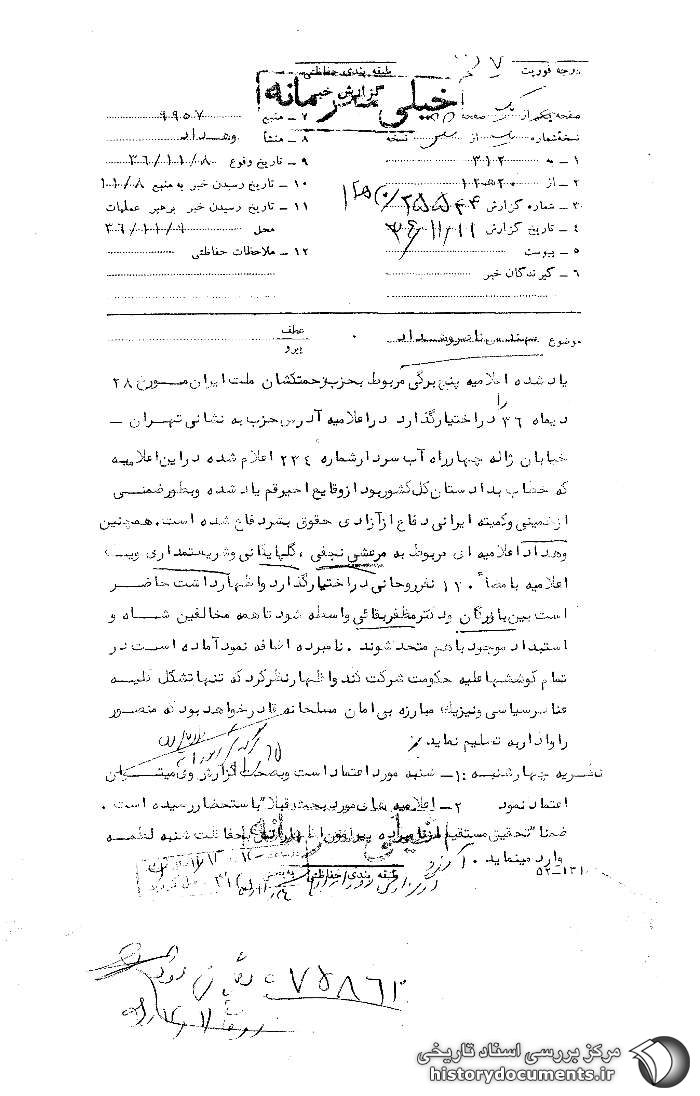 درجه فوریت
طبقه بندی حفاظتی
خیلی محرمانه
گزارش خبر
صفحه یکم از یک صفحه
نسخه شماره از نسخه
۱ - به ۳۱۲
۲ - از ۲۰ ه ۱۲
۳ - شماره گزارش
۴ - تاریخ گزارش ۳۶/۱۱/۱۱
۵ - پیوست
۶ - گیرندگان خبر
۷ - منبع ۹۹۵۷
۸ - منشأ وهداد
۹ - تاریخ وقوع ۳۶/۱۱/۸
۱۰ - تاریخ رسیدن خبر به منبع ۱۱/۸
۱۱ - تاریخ رسیدن خبر برهبر عملیات
محل ۳۶/۱۱/۹
۱۲ - ملاحظات حفاظتی
موضوع مهندس ناصر وهداد
عطف
پیرو
یاد شده اعلامیه پنج برگی مربوط بحزب زحمتکشان ملت ایران مورخ ۲۸
دیماه ۳۶ را در اختیار گذارد در اعلامیه آدرس حزب به نشانی تهران -
خیابان ژاله چهارراه آب سردار شماره ۲۳۴ اعلام شده در این اعلامیه
که خطاب بدادستان کل کشور بود از وقایع اخیر قم یاد شده و بطور ضمنی
از خمینی و کمیته ایرانی دفاع از آزادی حقوق بشر دفاع شده است. همچنین
وهداد اعلامیه ای مربوط به مرعشی نجفی ، گلپایگانی و شریعتمداری و یک
اعلامیه با امضاء ۱۲۰ نفر روحانی در اختیار گذارد و اظهار داشت حاضر
است بین بازرگان و دکتر مظفر بقائی واسطه شود تا همه مخالفین شاه و
استبداد موجود با هم متحد شوند . نامبرده اضافه نمود آماده است در
تمام کوششها علیه حکومت شرکت کند و اظهار نظر کرد که تنها تشکل کلیه
عناصر سیاسی و نیز یک مبارزه بی امان مسلحانه قادر خواهد بود که منصور
را وادار به تسلیم نماید
نظریه چهارشنبه : ۱- شنبه مورد اعتماد است و بصحت گزارش وی میتوان
اعتماد نمود ۲- اعلامیه های مورد بحث قبلا" باستحضار رسیده است .
ضمنا" تحقیق مستقیم از نامبرده پیرامون اظهاراتش بحفاظت شنبه لطمه
وارد مینماید
۵۲-۱۳۱۰
طبقه بندی حفاظتی
۷۵۸۶۱۲
مرکز بررسی اسناد تاریخی
historydocuments.ir